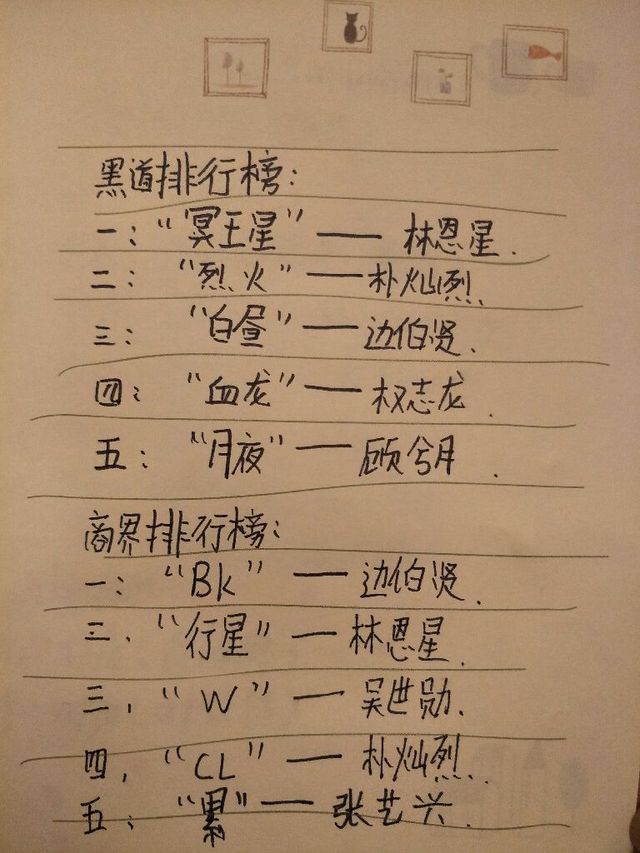 黑道排行榜：
一：“冥王星”——林恩星．
二：“烈火”——朴灿烈．
三：“白昼”——边伯贤．
四：“血龙”——权志龙．
五：“月夜”——顾兮月．
商界排行榜：
一：“Bk”——边伯贤．
二．“行星”——林恩星．
三．“W”——吴世勋．
四，“CL”——朴灿烈．
五：“累”——张艺兴．